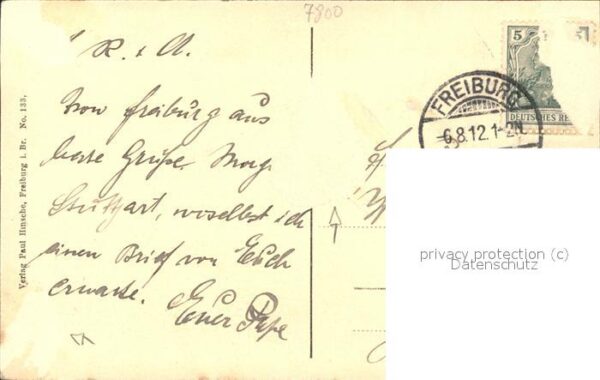 7900
L. R. & A.
Von Freiburg aus
beste Grüße. Morg.
Stuttgart, woselbst ich
einen Brief von Euch
erwarte.
Euer Pape
Verlag Paul Hinsche, Freiburg i. Br. No. 133.
5
DEUTSCHES RE
FREIBURG
6.8.12.1-2N
privacy protection (c)
Datenschutz